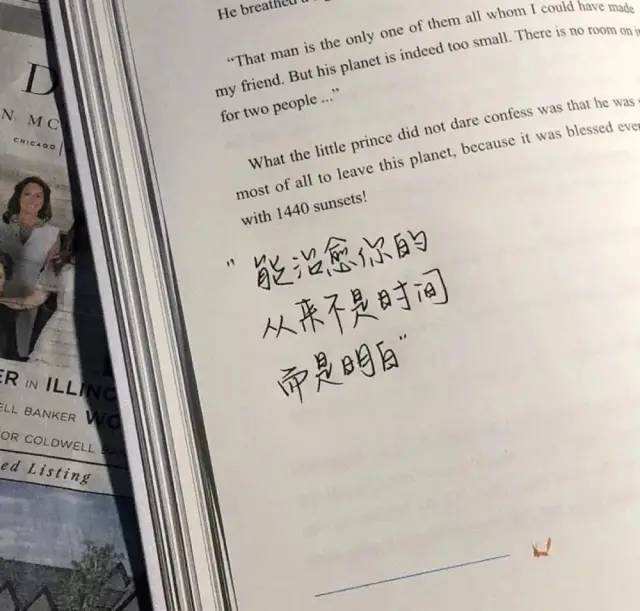 He breathed a
"That man is the only one of them all whom I could have made
my friend. But his planet is indeed too small. There is no room on
for two people ..."
What the little prince did not dare confess was that he was
most of all to leave this planet, because it was blessed
with 1440 sunsets!
"能治愈你的
从来不是时间
而是明白"
D
N MC
CHICAGO
ER IN ILLINO
ELL BANKER WO
OR COLDWELL
ed Listing